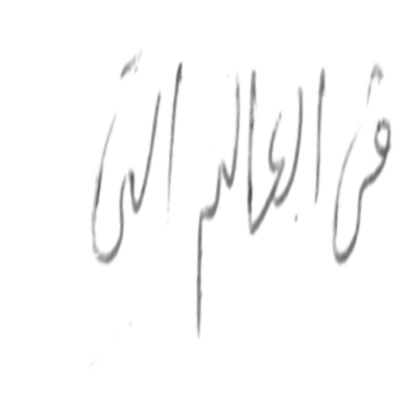 في العالم التي